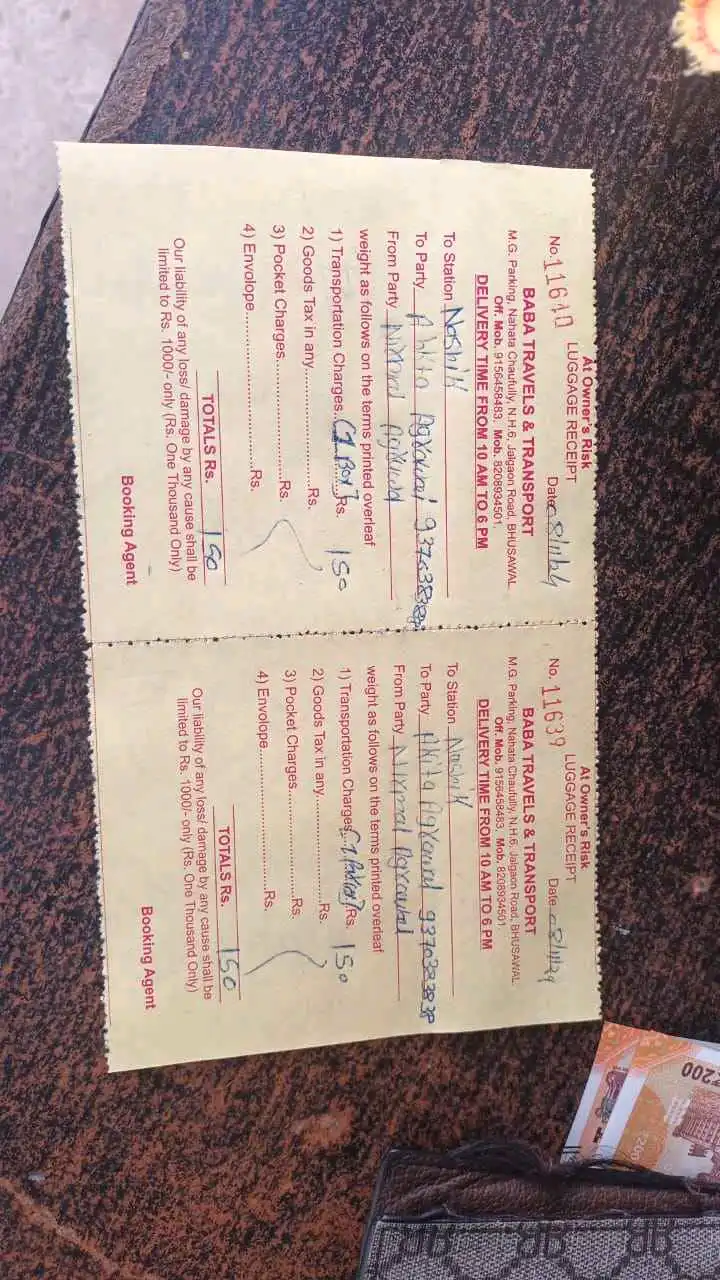 At Owner's Risk
LUGGAGE RECEIPT
No. 11640 Date 08/11/24
BABA TRAVELS & TRANSPORT
M.G. Parking, Nahata Chaufully, N.H.6, Jalgaon Road, BHUSAWAL
Off. Mob. 9156458483, Mob. 8208934501,
DELIVERY TIME FROM 10 AM TO 6 PM
To Station Nashik
To Party Agrawal
From Party Nirmal Agrawal
weight as follows on the terms printed overleaf
1) Transportation Charges (1 Box) Rs. 150
2) Goods Tax in any..............Rs.
3) Pocket Charges..............Rs.
4) Envolope..............Rs.
TOTALS Rs. 150
Our liability of any loss/ damage by any cause shall be
limited to Rs. 1000/- only (Rs. One Thousand Only)
Booking Agent
At Owner's Risk
LUGGAGE RECEIPT
No. 11639 Date 08/11/24
BABA TRAVELS & TRANSPORT
M.G. Parking, Nahata Chaufully, N.H.6, Jalgaon Road, BHUSAWAL
Off. Mob. 9156458483, Mob. 8208934501,
DELIVERY TIME FROM 10 AM TO 6 PM
To Station Nashik
To Party Akita Agrawal
From Party Nirmal Agrawal
weight as follows on the terms printed overleaf
1) Transportation Charges Rs. 150
2) Goods Tax in any..............Rs.
3) Pocket Charges..............Rs.
4) Envolope..............Rs.
TOTALS Rs. 150
Our liability of any loss/ damage by any cause shall be
limited to Rs. 1000/- only (Rs. One Thousand Only)
Booking Agent
₹200
200